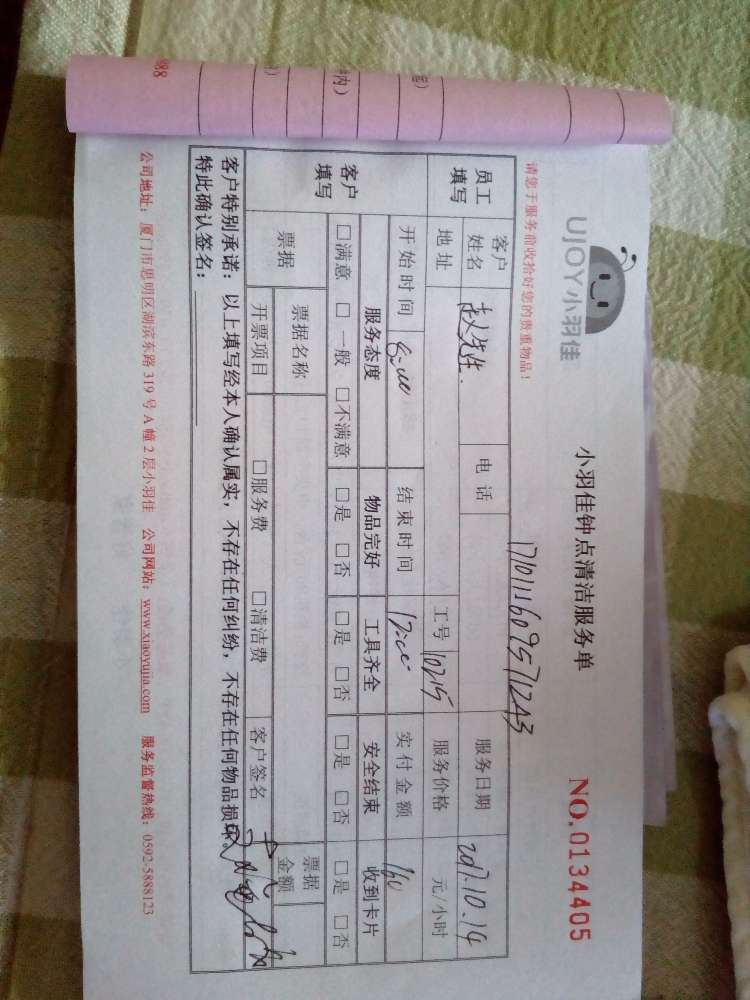 UJOY小羽佳
小羽佳钟点清洁服务单
NO.0134405
请您于服务前收拾好您的贵重物品！
员工填写
客户姓名 赵先生. 电话 服务日期 2017.10.14
地址 工号 10215 服务价格 元/小时
开始时间 结束时间 实付金额 160
客户填写
服务态度 物品完好 工具齐全 安全结束 收到卡片
□满意 □一般 □不满意 □是 □否 □是 □否 □是 □否 □是 □否
票据 票据名称 票据金额
开票项目 □服务费 □清洁费 客户签名
客户特别承诺：以上填写经本人确认属实，不存在任何纠纷，不存在任何物品损坏。
特此确认签名：
公司地址：厦门市思明区湖滨东路319号A幢2层小羽佳 公司网站：www.xiaoyujia.com 服务监督热线：0592-5888123